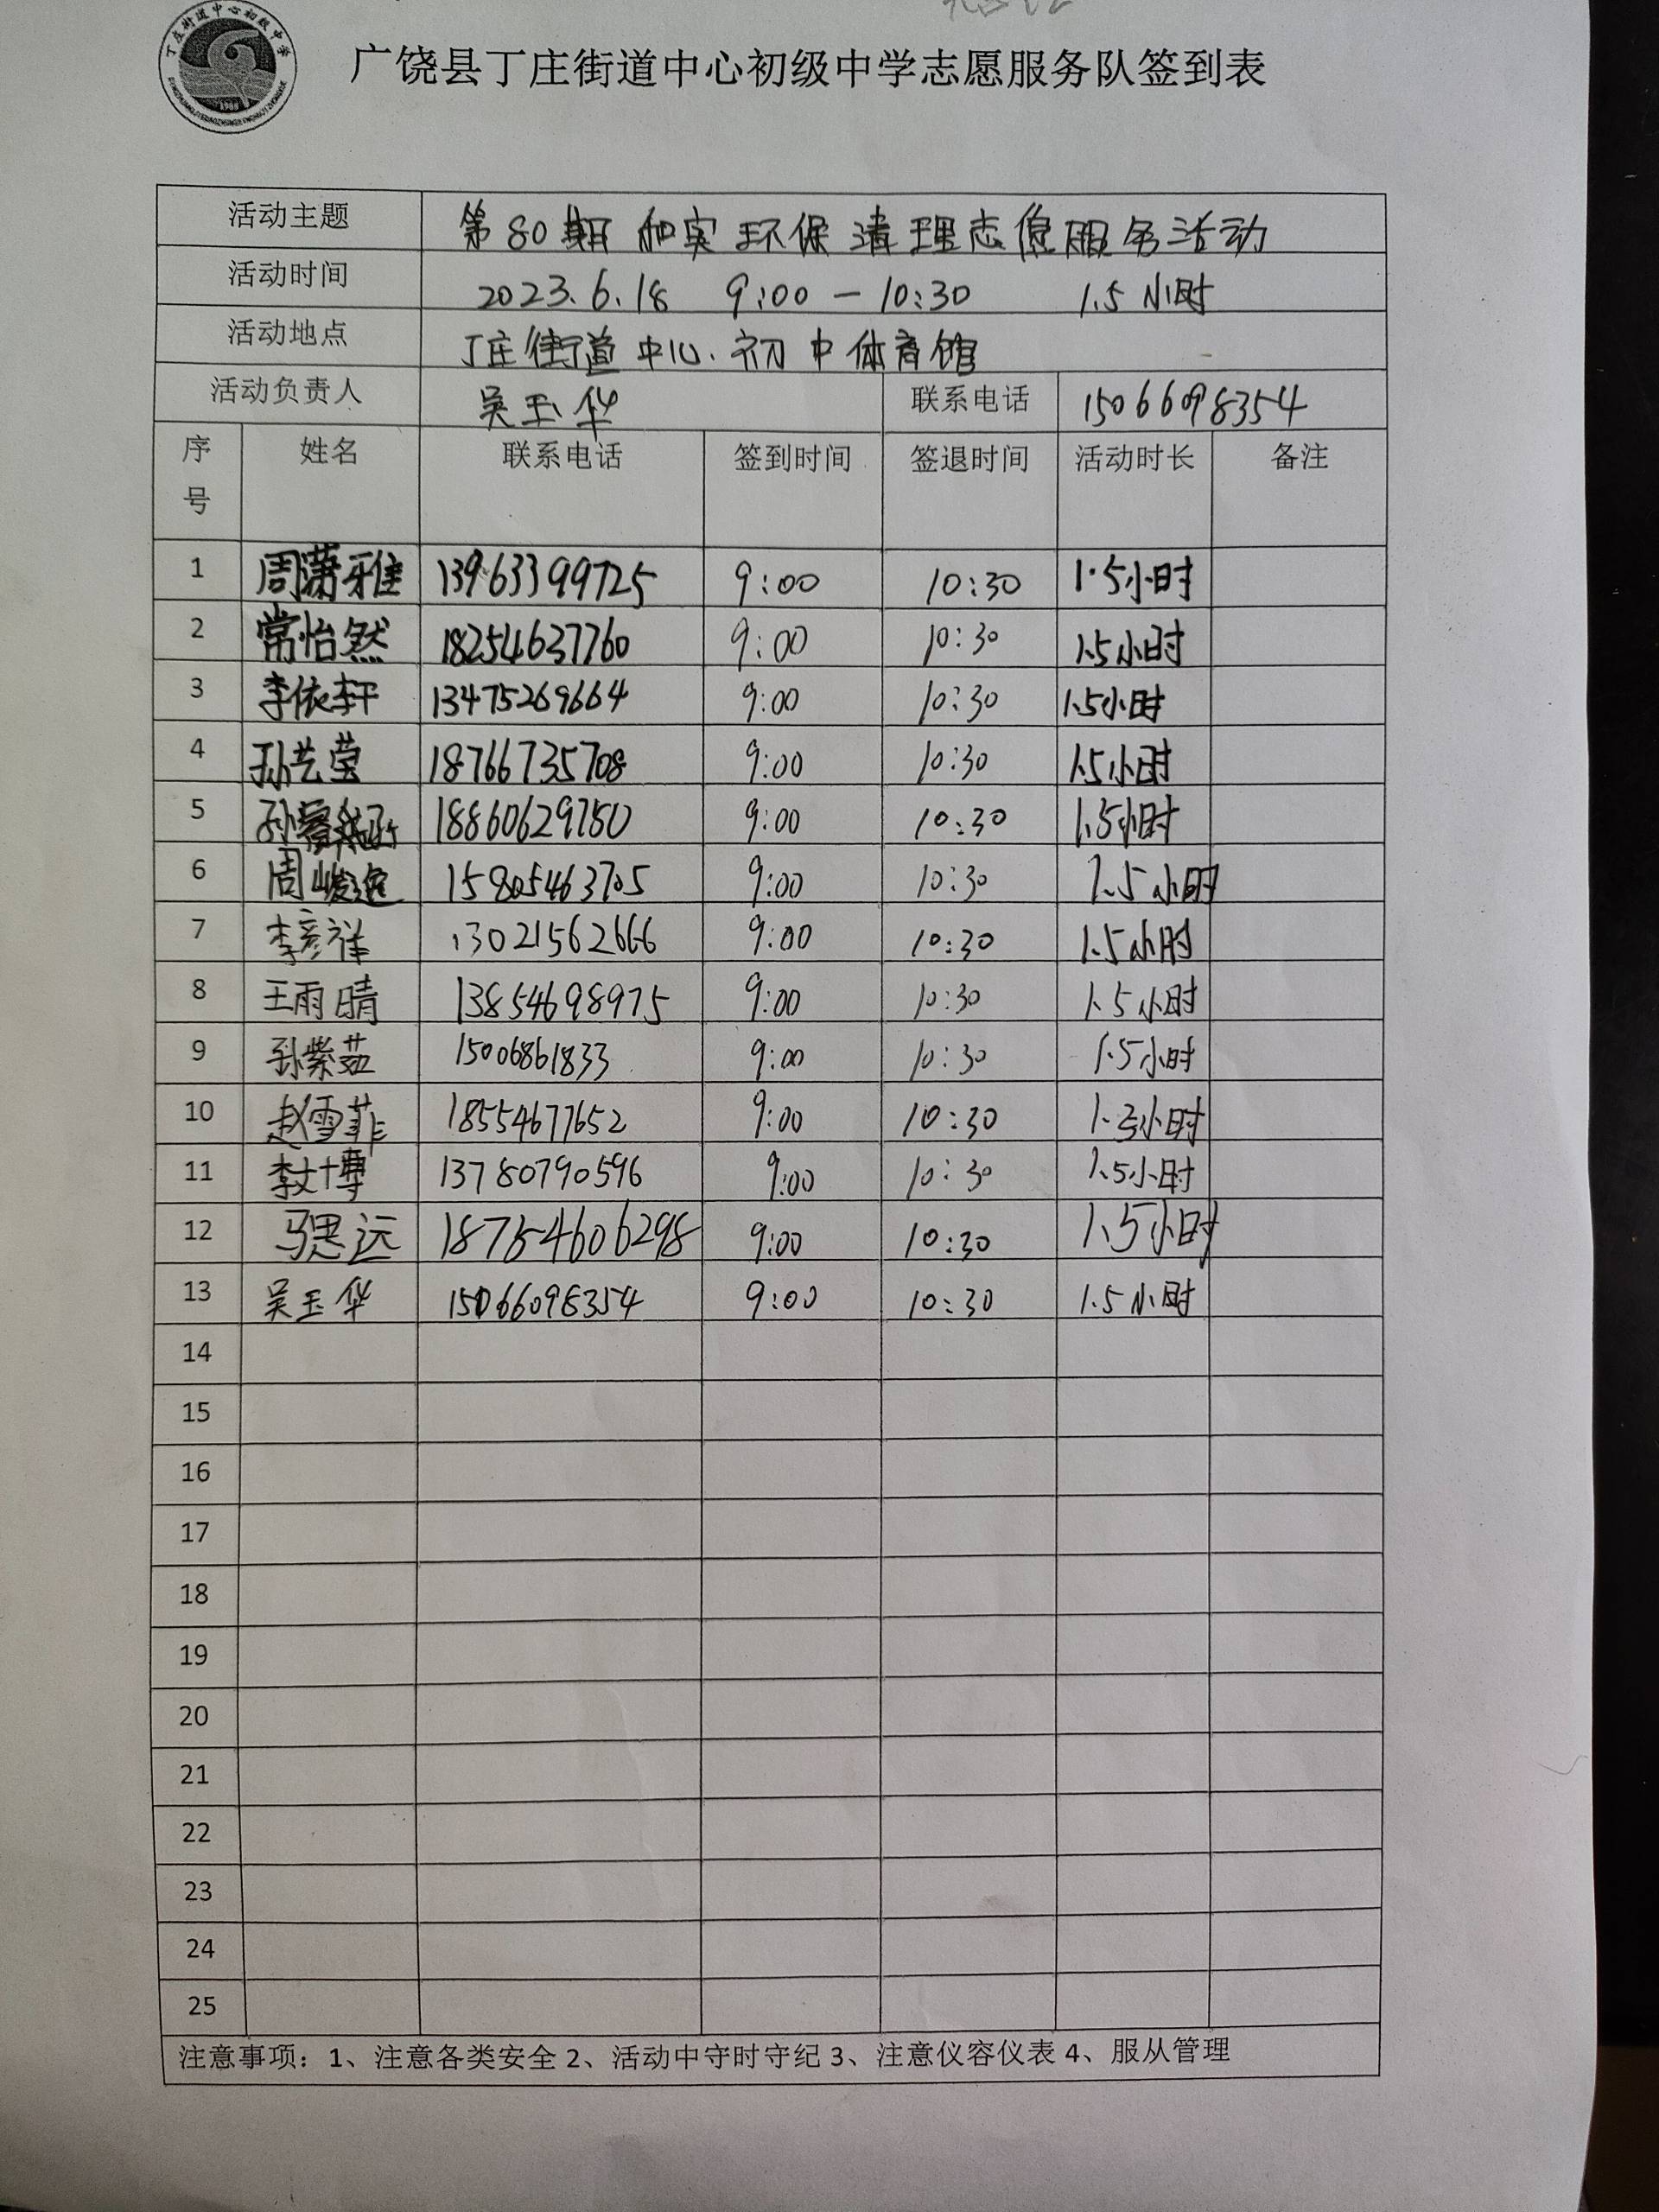 丁庄街道中心初级中学
1988
广饶县丁庄街道中心初级中学志愿服务队签到表
活动主题 第80期和实环保清理志愿服务活动
活动时间 2023.6.18 9:00-10:30 1.5小时
活动地点 丁庄街道中心初中体育馆
活动负责人 吴玉华 联系电话 15066098354
序号 姓名 联系电话 签到时间 签退时间 活动时长 备注
1 周潇雅 13963399725 9:00 10:30 1.5小时
2 常怡然 18254637760 9:00 10:30 1.5小时
3 李依轩 13475269664 9:00 10:30 1.5小时
4 孙艺莹 18766735708 9:00 10:30 1.5小时
5 孙睿 18860629750 9:00 10:30 1.5小时
6 周峻逸 15805463705 9:00 10:30 1.5小时
7 李彦祥 13021562666 9:00 10:30 1.5小时
8 王雨晴 13854698975 9:00 10:30 1.5小时
9 孙紫茹 15006861833 9:00 10:30 1.5小时
10 赵雪菲 18554677652 9:00 10:30 1.5小时
11 李文博 13780790596 9:00 10:30 1.5小时
12 马思远 18754606298 9:00 10:30 1.5小时
13 吴玉华 15066098354 9:00 10:30 1.5小时
14
15
16
17
18
19
20
21
22
23
24
25
注意事项：1、注意各类安全 2、活动中守时守纪 3、注意仪容仪表 4、服从管理